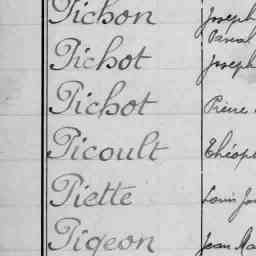 Pichon Joseph
Pascal
Pichot Joseph
Pichot Pierre
Picoult Théop
Piette Louis Jo
Pigeon Jean Ma